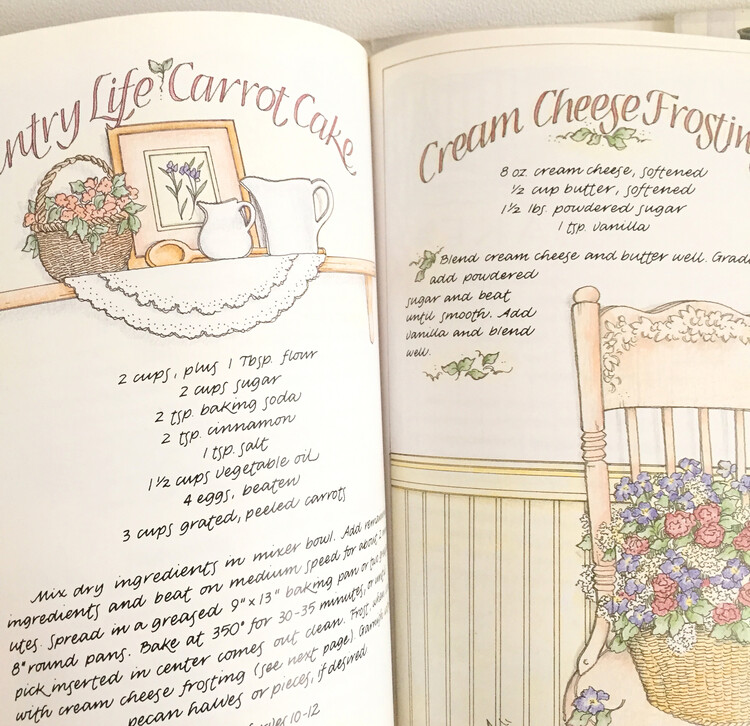 ntry Life Carrot Cake
2 cups, plus 1 Tbsp. flour
2 cups sugar
2 tsp. baking soda
2 tsp. cinnamon
1 tsp. salt
1½ cups vegetable oil
4 eggs, beaten
3 cups grated, peeled carrots
Mix dry ingredients in mixer bowl. Add
ingredients and beat on medium speed for about 2
utes. Spread in a greased 9" x 13" baking pan or
8" round pans. Bake at 350° for 30-35 minutes, or
pick inserted in center comes out clean. Frost
with cream cheese frosting (see next page). Garnish
pecan halves or pieces, if desired
10-12
Cream Cheese Frostin
8 oz. cream cheese, softened
½ cup butter, softened
1½ lbs. powdered sugar
1 tsp. vanilla
Blend cream cheese and butter well. Grad
add powdered
sugar and beat
until smooth. Add
vanilla and blend
well.